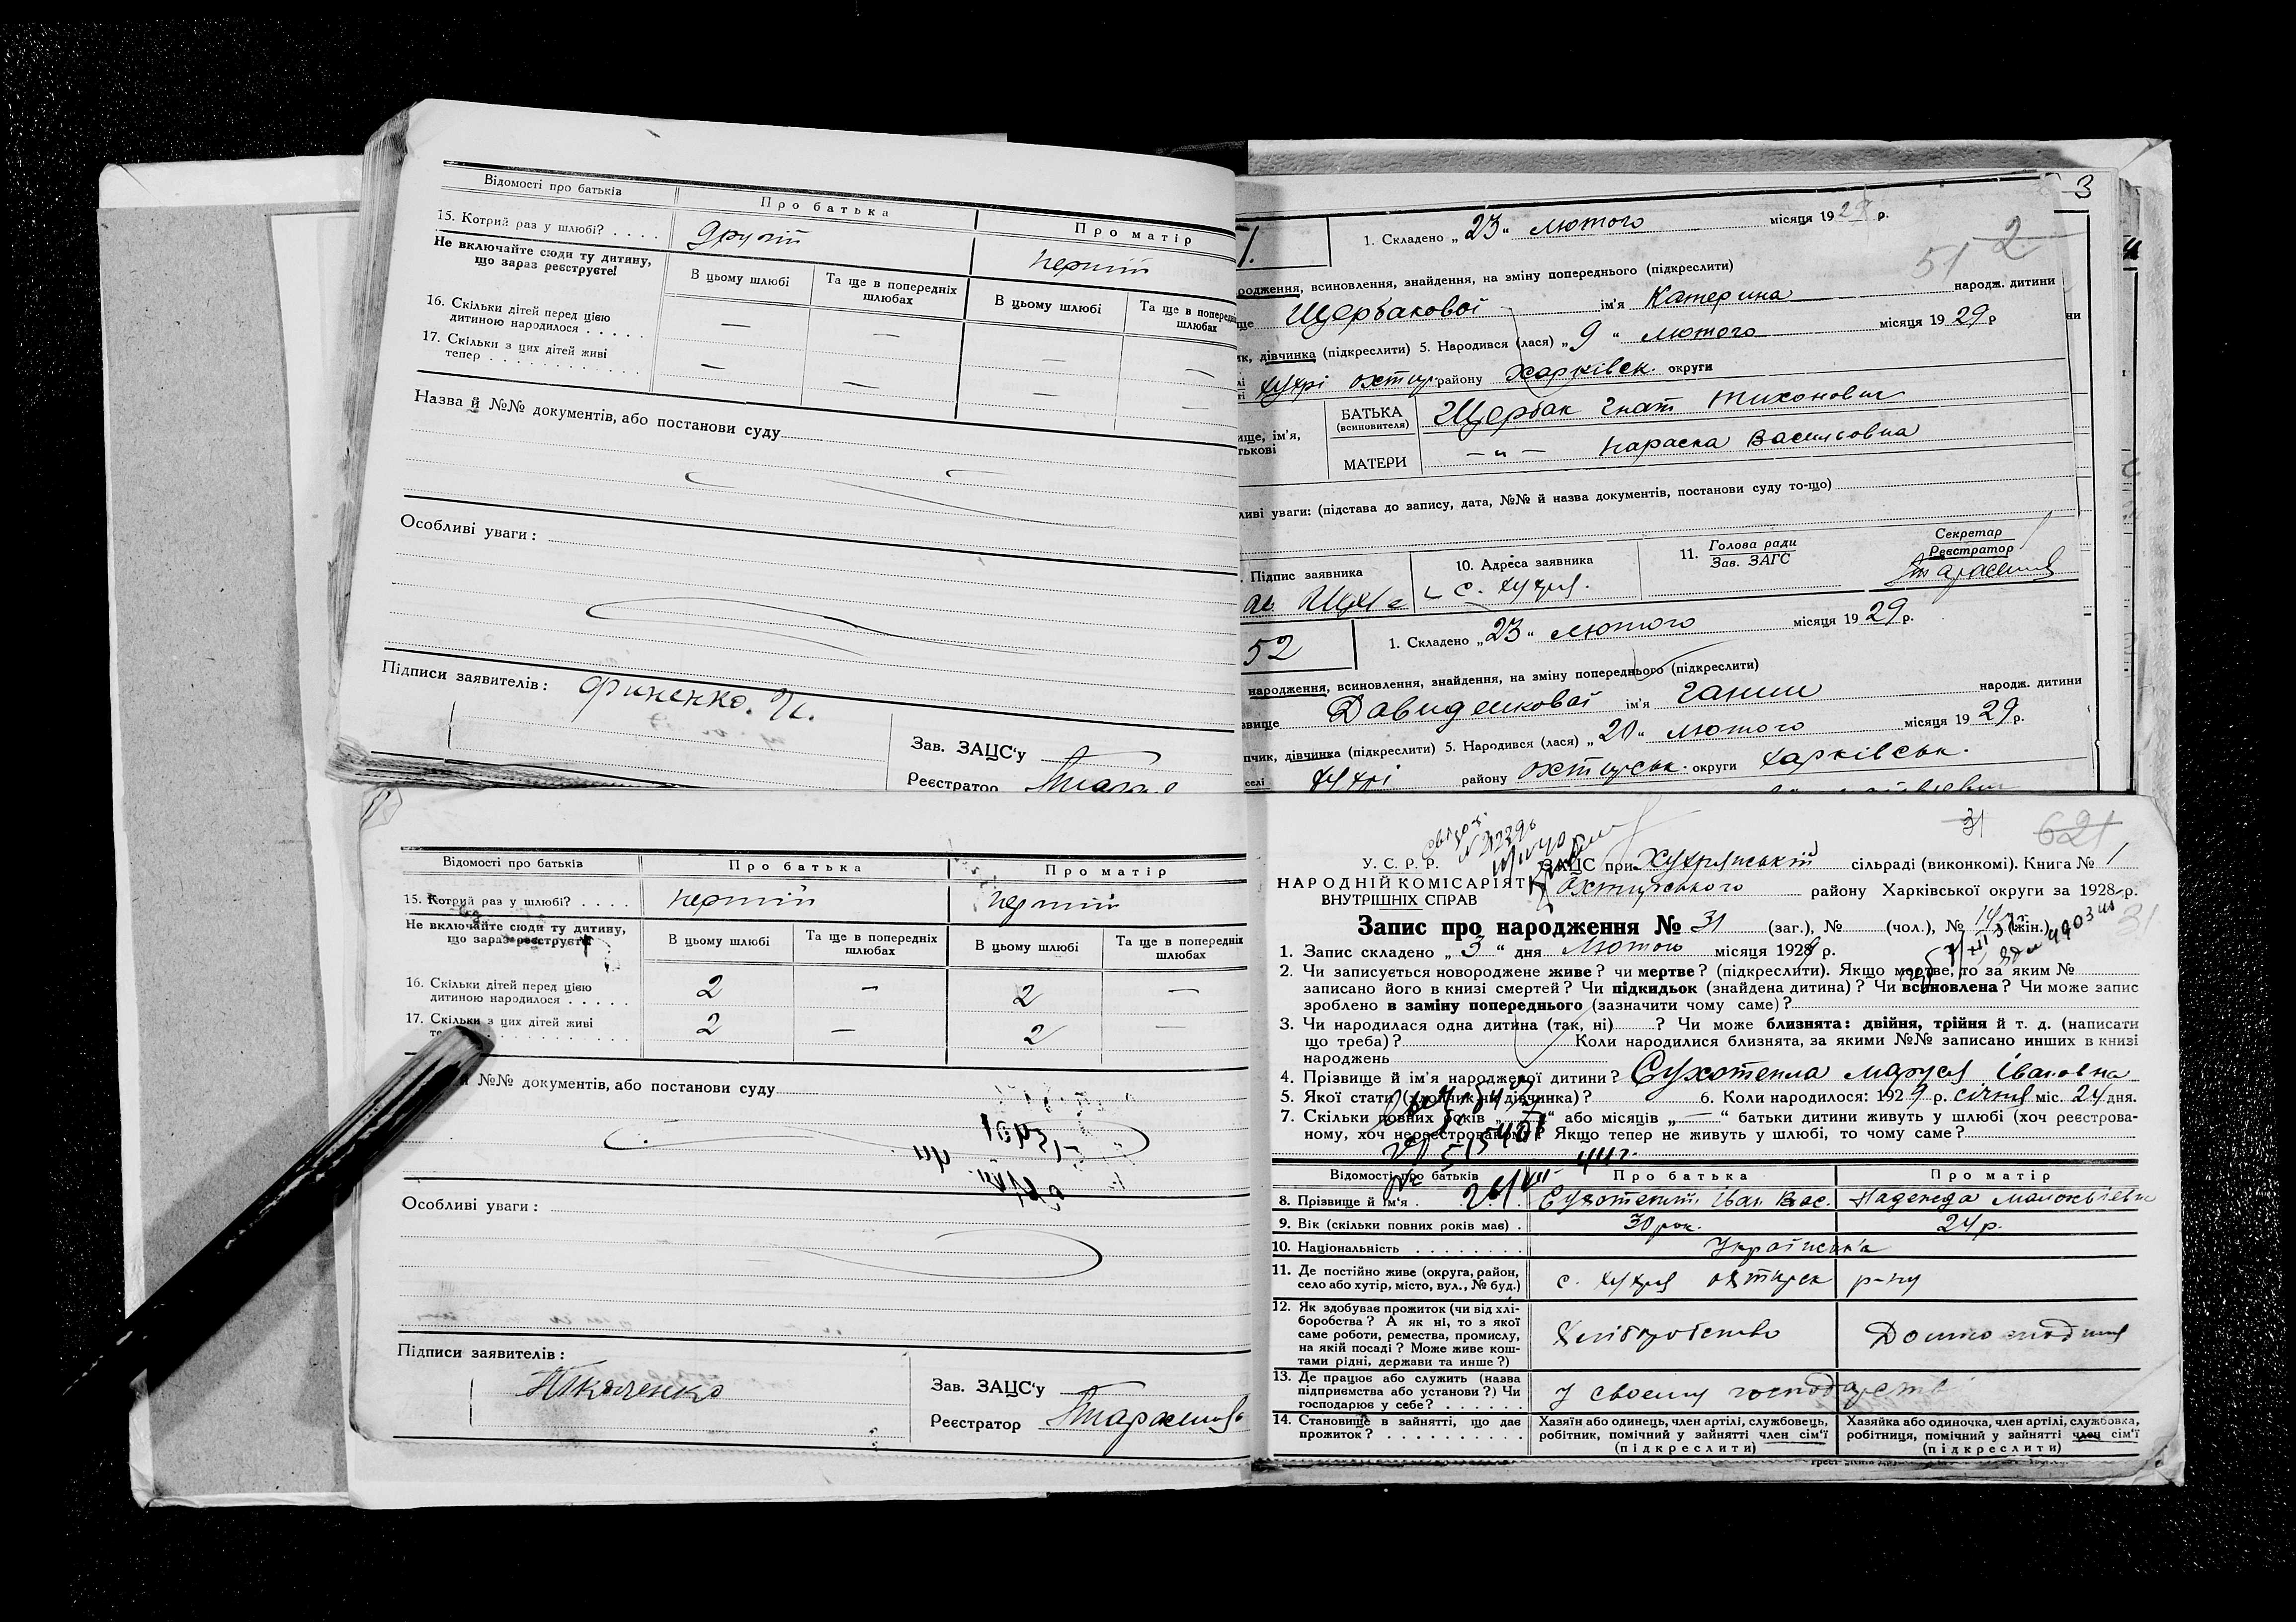 Відомості про батьків
Про батька
Про матір
15. Котрий раз у шлюбі? . . . .
другий
перший
Не включайте сюди ту дитину,
що зараз реєструєте!
В цьому шлюбі
Та ще в попередніх
шлюбах
В цьому шлюбі
Та ще в поперед
шлюбах
16. Скільки дітей перед цією
дитиною народилося . . . . .
— — — —
17. Скільки з цих дітей живі
тепер . . . . . . . . . . . .
— — — —
Назва й №№ документів, або постанови суду
Особливі уваги:
Підписи заявителів: Финенко. И.
Зав. ЗАЦС'у
Реєстратор
3
1. Складено „ 23 “ лютого місяця 1929 р.
51 2
родження, всиновлення, знайдення, на зміну попереднього (підкреслити)
ще Щербакової ім'я Катерина народж. дитини
ик, дівчинка (підкреслити) 5. Народився (лася) „ 9 “ лютого місяця 1929 р
ни
Хухрі охтир району Харківськ. округи
БАТЬКА
(всиновителя)
Щербак Гнат Тихонович
ище, ім'я,
тькові
МАТЕРИ
— „ — Параска Василовна
ливі уваги: (підстава до запису, дата, №№ й назва документів, постанови суду то-що)
. Підпис заявника
10. Адреса заявника
с. Хухря.
11. Голова ради
Зав. ЗАГС
Секретар
Реєстратор
52
1. Складено „ 23 “ лютого місяця 1929 р.
народження, всиновлення, знайдення, на зміну попереднього (підкреслити)
звище Давиденкової ім'я Ганни народж. дитини
пчик, дівчинка (підкреслити) 5. Народився (лася) „ 20 “ лютого місяця 1929 р.
селі Хухрі району Охтирськ. округи Харківськ.
Відомості про батьків
Про батька
Про матір
15. Котрий раз у шлюбі? . . . .
перший
перший
Не включайте сюди ту дитину,
що зараз реєструєте
В цьому шлюбі
Та ще в попередніх
шлюбах
В цьому шлюбі
Та ще в попередніх
шлюбах
16. Скільки дітей перед цією
дитиною народилося . . . . .
2 — 2 —
17. Скільки з цих дітей живі
2 — 2 —
№№ документів, або постанови суду
Особливі уваги:
Підписи заявителів:
Ткаченко
Зав. ЗАЦС'у
Реєстратор
31 621
У. С. Р. Р.
НАРОДНІЙ КОМІСАРІЯТ
ВНУТРІШНІХ СПРАВ
ЗАЦС при Хухрянській сільраді (виконкомі). Книга № 1
Охтирського району Харківської округи за 1928 р.
Запис про народження № 31 (заг.), № (чол.), № 14 (жін.)
31
1. Запис складено „ 3 “ дня Лютого місяця 1929 р.
2. Чи записується новороджене живе? чи мертве? (підкреслити). Якщо мертве, то за яким №
записано його в книзі смертей? Чи підкидьок (знайдена дитина)? Чи всиновлена? Чи може запис
зроблено в заміну попереднього (зазначити чому саме)?
3. Чи народилася одна дитина (так, ні) ? Чи може близнята: двійня, трійня й т. д. (написати
що треба)? Коли народилися близнята, за якими №№ записано инших в книзі
народжень
4. Прізвище й ім'я народженої дитини? Сухотепла Маруся Івановна
5. Якої стати (хлопчик чи дівчинка)? 6. Коли народилося: 1929 р. січня міс. 24 дня.
7. Скільки повних років „ “ або місяців „ — “ батьки дитини живуть у шлюбі (хоч реєстрова-
ному, хоч нереєстрованому)? Якщо тепер не живуть у шлюбі, то чому саме?
Відомості про батьків
Про батька
Про матір
8. Прізвище й ім'я .
Сухотеплий Іван Вас.
Надежда
9. Вік (скільки повних років має) .
30 рок.
24 р.
10. Національність . . . . . . . .
Українська
11. Де постійно живе (округа, район,
село або хутір, місто, вул., № буд.)
с. Хухря охтирск р-ну
12. Як здобуває прожиток (чи від хлі-
боробства? А як ні, то з якої
саме роботи, ремества, промислу,
на якій посаді? Може живе кош-
тами рідні, держави та инше?)
Хліборобство
13. Де працює або служить (назва
підприємства або установи?) Чи
господарює у себе? . . . . . .
У своєму господарстві
14. Становище в зайнятті, що дає
прожиток? . . . . . . . . . .
Хазяїн або одинець, член артілі, службовець,
робітник, помічний у зайнятті член сім'ї
(підкреслити)
Хазяйка або одиночка, член артілі, службовка,
робітниця, помічний у зайнятті член сім'ї
(підкреслити)